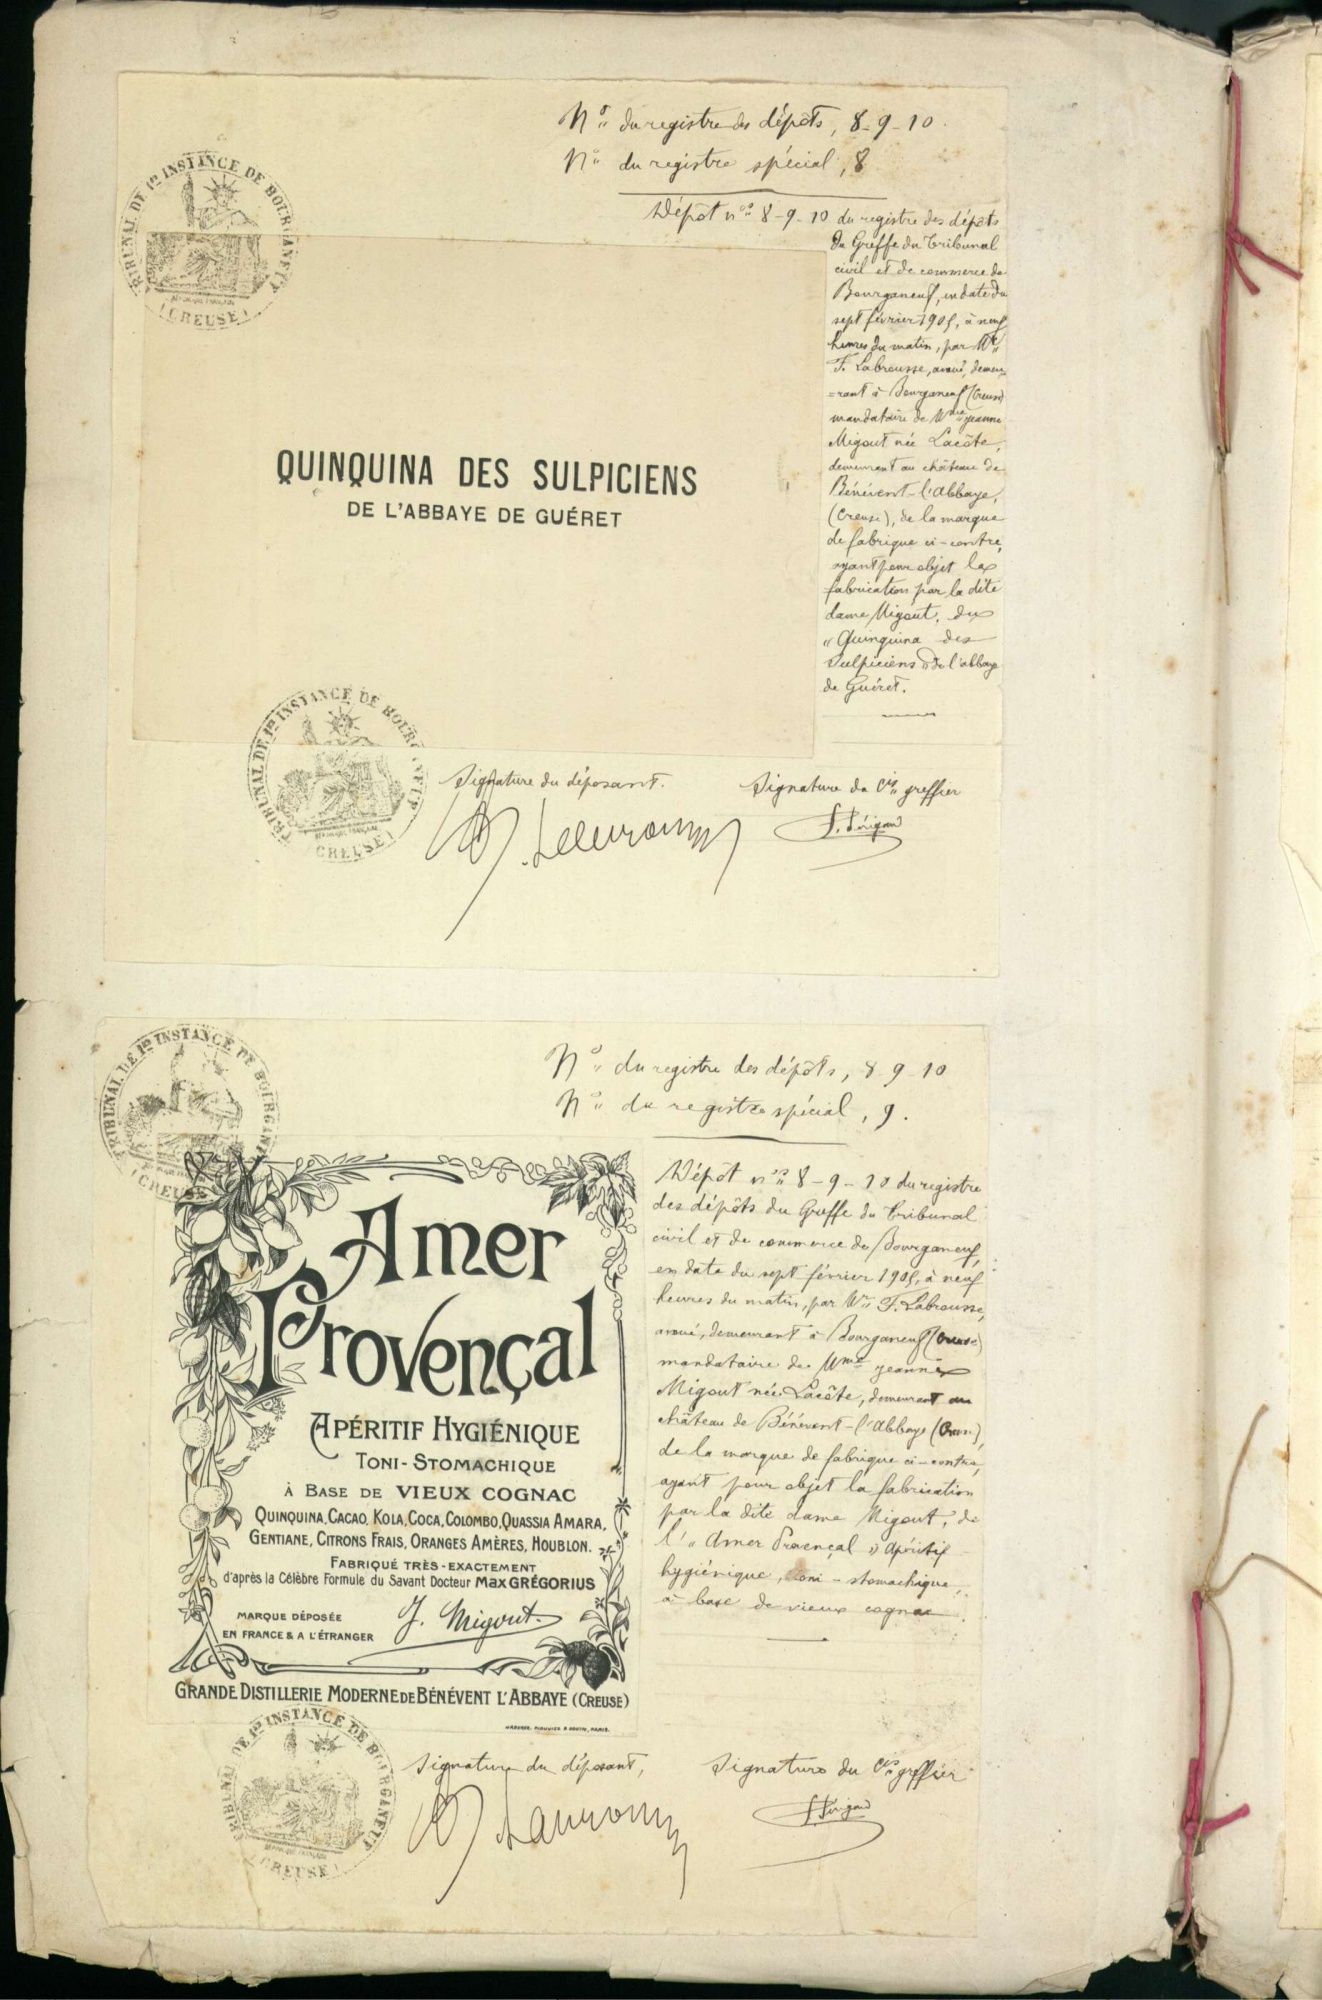 Nº du registre des dépôts, 8-9-10.
Nº du registre spécial, 8
Dépôt nos 8-9-10 du registre des dépôts
du Greffe du Tribunal
civil et de commerce de
Bourganeuf, en date du
sept février 1905, à neuf
heures du matin, par Me
F. Labrousse, avoué, demeu
=rant à Bourganeuf (Creuse)
mandataire de Mme Jeanne
Migout née Lacôte,
demeurant au château de
Bénévent-l'Abbaye,
(Creuse), de la marque
de fabrique ci-contre,
ayant pour objet la
fabrication par la dite
dame Migout, du
"Quinquina des
Sulpiciens" de l'abbaye
de Guéret.
TRIBUNAL DE 1re INSTANCE DE BOURGANEUF
RÉPUBLIQUE FRANÇAISE
(CREUSE)
QUINQUINA DES SULPICIENS
DE L'ABBAYE DE GUÉRET
TRIBUNAL DE 1re INSTANCE DE BOURGANEUF
RÉPUBLIQUE FRANÇAISE
(CREUSE)
Signature du déposant.
Signature du cis greffier
Nº du registre des dépôts, 8-9-10
Nº du registre spécial, 9.
Dépôt nos 8-9-10 du registre
des dépôts du Greffe du Tribunal
civil et de commerce de Bourganeuf,
en date du sept février 1905, à neuf
heures du matin, par Me F. Labrousse,
avoué, demeurant à Bourganeuf (Creuse)
mandataire de Mme Jeanne
Migout née Lacôte, demeurant au
château de Bénévent-l'Abbaye (Creuse),
de la marque de fabrique ci-contre,
ayant pour objet la fabrication
par la dite dame Migout, de
l'"Amer Provençal" Apéritif
hygiénique, toni-stomachique,
à base de vieux cognac.
TRIBUNAL DE 1re INSTANCE DE BOURGANEUF
(CREUSE)
Amer
Provençal
APÉRITIF HYGIÉNIQUE
TONI-STOMACHIQUE
À BASE DE VIEUX COGNAC
QUINQUINA, CACAO, KOLA, COCA, COLOMBO, QUASSIA AMARA,
GENTIANE, CITRONS FRAIS, ORANGES AMÈRES, HOUBLON.
FABRIQUÉ TRÈS-EXACTEMENT
d'après la Célèbre Formule du Savant Docteur MAX GRÉGORIUS
MARQUE DÉPOSÉE
EN FRANCE & A L'ÉTRANGER
J. Migout.
GRANDE DISTILLERIE MODERNE DE BÉNÉVENT L'ABBAYE (CREUSE)
TRIBUNAL DE 1re INSTANCE DE BOURGANEUF
RÉPUBLIQUE FRANÇAISE
(CREUSE)
Signature du déposant,
Signature du cis greffier